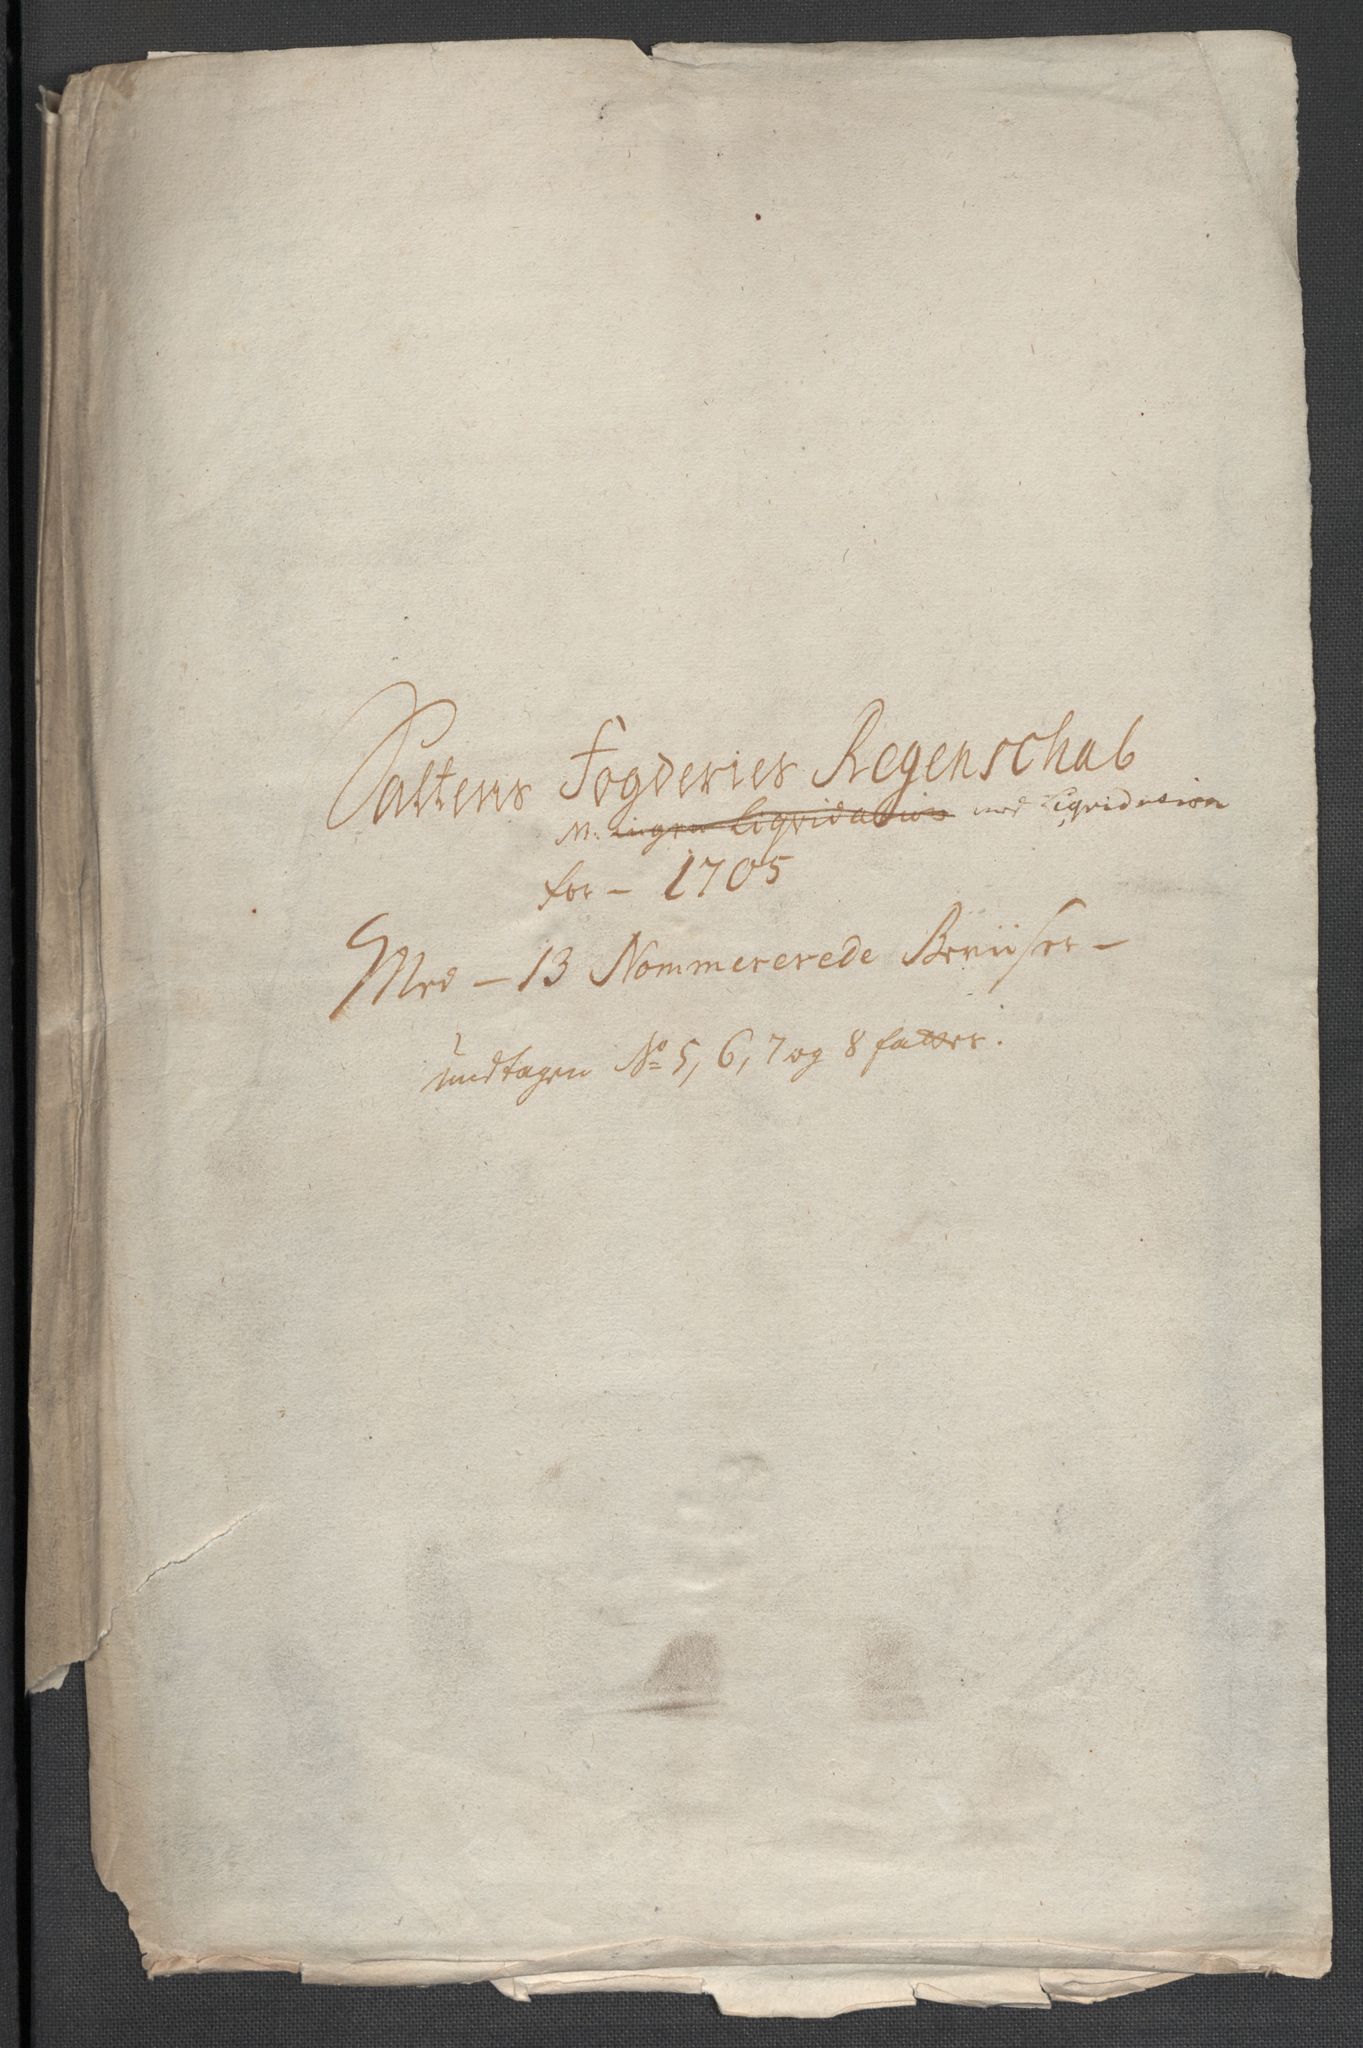 Saltens Fogderies Regenschab
M. ingen Liqvidation med Liqvidasion
for – 1705
Med – 13 Nommererede Beviiser –
undtagen No 5, 6, 7 og 8 fattes.